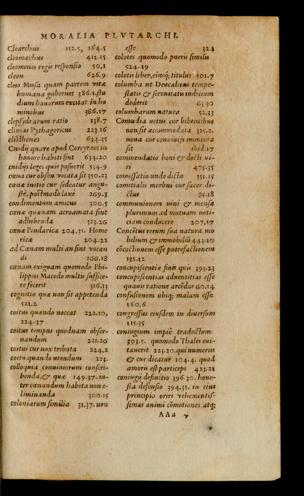 MORALIA PLVTARCHI.
Clearchus 112.5, 164.5
cleomachus 411.15
cleomenis regis responsio 50.1
cleon 626.9
cleo Musa quam partem vitæ
humanæ gubernet 386.1. stu
dium honorum excitat in ho
minibus 386.17
clepsydrarum ratio 138.7
clinias Pythagoricus 223.16
clisthenes 623.35
Cnidij quare apud Corcyræos in
honore habiti sint 634.20
cnidij leges quis posuerit 554.9
cœna cur obsen vocata sit 350.23
cœnæ initio cur sedeatur angu-
stè, postmodo laxè 269.3
condimentum amicus 300.5
cœnæ quænam acroamata sint
adhibenda 323.26
cœnæ Pindaricæ 204.31. Home
ricæ 204.22
ad Cœnam multi an sint vocan
di 200.18
cœnam exiguam quomodo Phi-
lippus Macedo multis suffice-
re fecerit 316.33
cognitio quæ non sit appetenda
521.2
coitus quando noceat 222.20,
224.37
coitus tempus quodnam obser-
uandum 221.26
coitus cur nox tributa 224.2
coitu quando utendum 223.
colloquia conuiuiorum conscri-
benda, & quæ 149.37. in-
ter cœnandum habita non e-
liminanda 300.15
coloniarum similia 31.37. uox
esse 32.1
colotes quomodo puere similis
524.19
colotis liber, eiusq; titulus 501.7
columba ut Deucalioni tempe-
statis & serenitatis indicium
dederit 63.30
columbarum natura 52.33
Comœdia uetus cur bibentibus
non sit accommodata 325.2.
noua cur conuiuijs immersa
sit ibid 17
commendatio boni & docti ui-
ri 475.35
comessatio unde dicta 351.15
comitialis morbus cur sacer di-
ctus 72.18
communionem uini & mensæ
plurimum ad mutuam noti-
ciam conducere 207.37
Concitus rerum sua natura mo
bilium & immobiliū 443.20
cōcoctionem esse putrefactionem
135.12
concupiscentia sint quis 393.23
concupiscentias aduentitias esse
quauis ratione arcēdas 60.14
confusionem ubiq; malam esse
160.6
congressus eiusdem in diuersum
315.35
coniugium impiè traductum
393.1. quomodo Thales eui-
tauerit 223.20. qui numerus
& cur dicatur 104.4. quod
amoris est particeps 423.21
coniugij definitio 396.30. hone-
sta defensio 394.31. in eius
principio oriri vehementis-
simas animi cōmotiones atq;
AAa 7